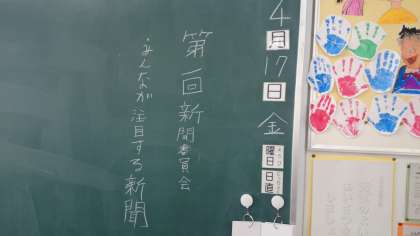 4月17日金曜日
日直
第一回新聞委員会
みんなが注目する新聞